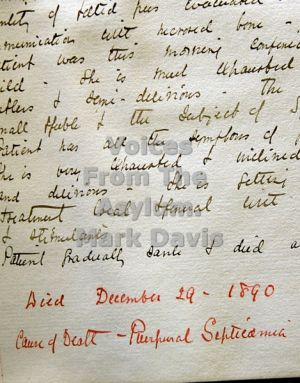 of fetid pus evacuated
communication with necrosed bone -
patient was this morning confined
child - She is much exhausted
& semi-delirious - The
small feeble & the subject of
Patient has all the symptoms of
She is very exhausted & inclined
and delirious She is getting
treatment local & general with
& stimulants
Patient gradually sank & died
Voices
From The
Asylum
Mark Davis
Died December 29 - 1890
Cause of Death - Puerperal Septicæmia